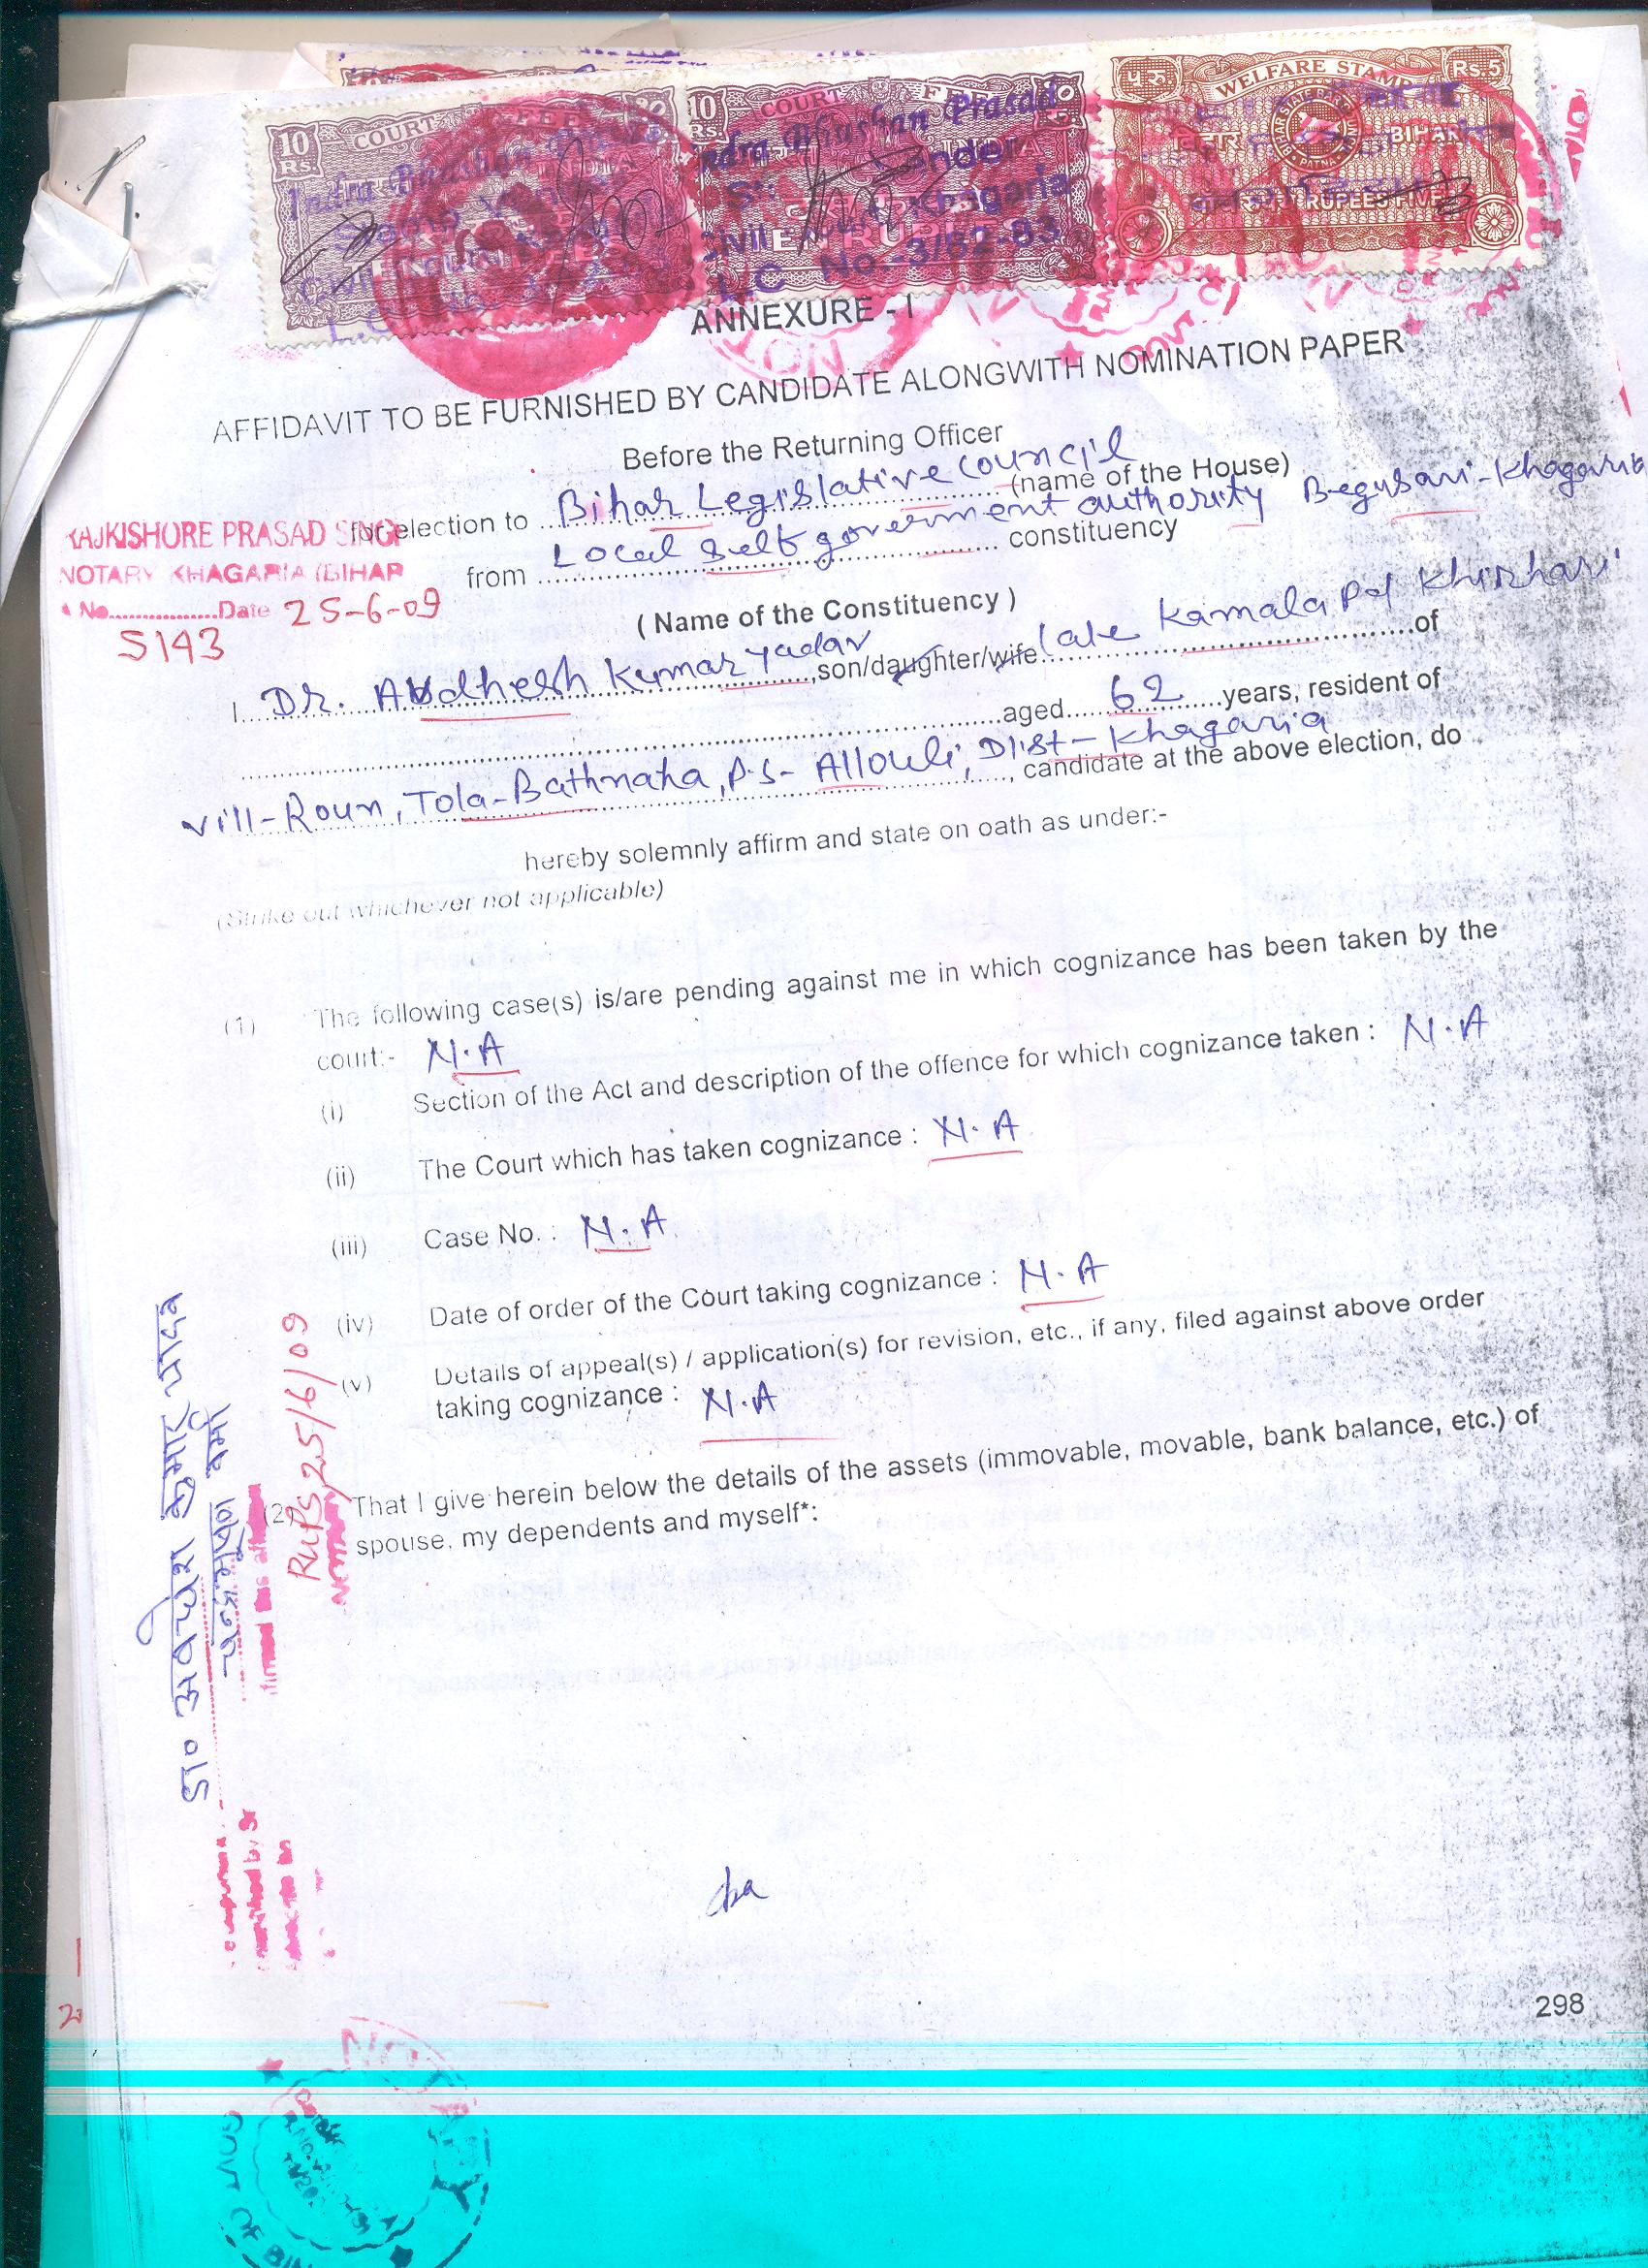 10 Rs. COURT FEE
10 Rs. COURT FEE
प रु. WELFARE STAMP Rs.5
Indra Bhushan Prasad
ndra Bhushan Prasad
Vendor
Khagaria
Civil
L.C No.-3/82-83
BIHAR STATE BAR
PATNA
बिहार BIHAR
RUPEES FIVE
ANNEXURE - I
AFFIDAVIT TO BE FURNISHED BY CANDIDATE ALONGWITH NOMINATION PAPER
Before the Returning Officer
for election to Bihar Legislative Council (name of the House)
from Local self government authority Begusari-Khagaria constituency
( Name of the Constituency )
RAJKISHORE PRASAD SINGH
NOTARY KHAGARIA (BIHAR
No.................Date 25-6-09
5143
I Dr. Avdhesh Kumar Yadav, son/daughter/wife late Kamala Pd Khirhari of
aged 62 years, resident of
Vill-Roun, Tola-Bathnaha, P.S- Allouli, Dist- Khagaria, candidate at the above election, do
hereby solemnly affirm and state on oath as under:-
(Strike out whichever not applicable)
(1) The following case(s) is/are pending against me in which cognizance has been taken by the
court:- N.A
(i) Section of the Act and description of the offence for which cognizance taken : N.A
(ii) The Court which has taken cognizance : N.A
(iii) Case No. : N.A
(iv) Date of order of the Court taking cognizance : N.A
(v) Details of appeal(s) / application(s) for revision, etc., if any, filed against above order
taking cognizance : N.A
(2) That I give herein below the details of the assets (immovable, movable, bank balance, etc.) of
spouse, my dependents and myself*:
डा० अवधेश कुमार यादव
चन्द्रभूषण वर्मा
RKPS 25/6/09
298
NOTARY
GOVT OF BIHAR